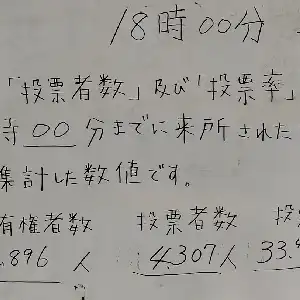 18時00分
「投票者数」及び「投票率」
時00分までに来所された
集計した数値です。
有権者数 投票者数 投
.896人 4,307人 33.